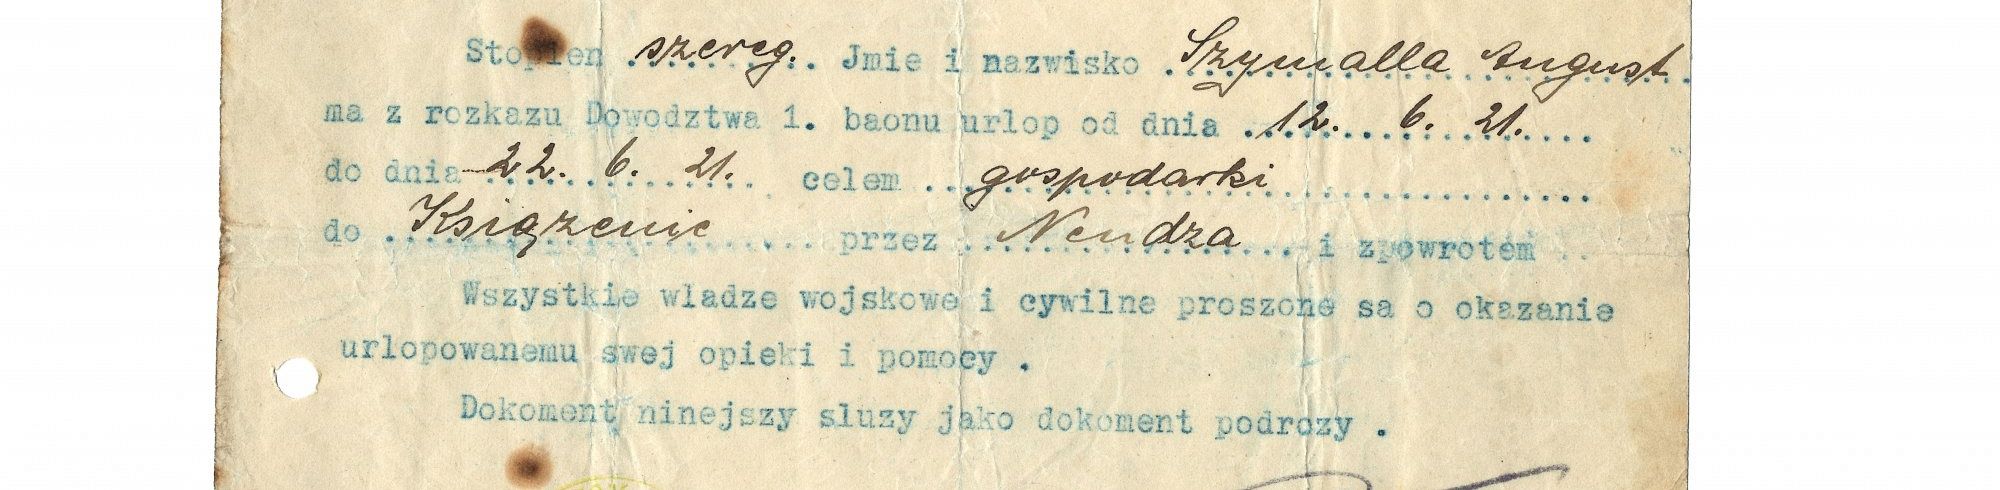 Stopien szereg. Jmie i nazwisko Szymalla August
ma z rozkazu Dowodztwa 1. baonu urlop od dnia 12. 6. 21.
do dnia 22. 6. 21. celem gospodarki
do Książenic przez Nendza i zpowrotem
Wszystkie wladze wojskowe i cywilne proszone sa o okazanie
urlopowanemu swej opieki i pomocy .
Dokoment ninejszy sluzy jako dokoment podrozy .